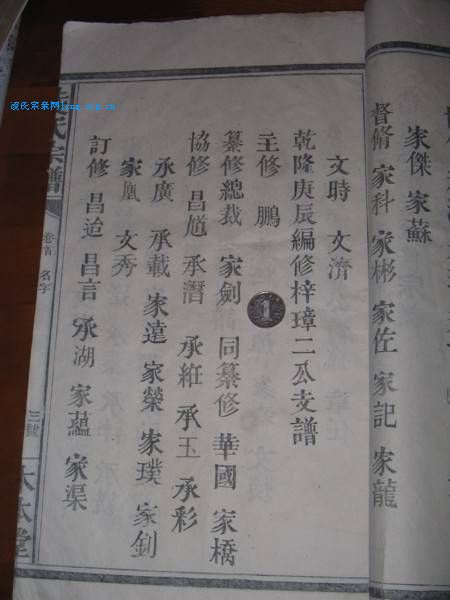 家傑 家蘇
督脩 家科 家彬 家佐 家記 家龍
文時 文濟
乾隆庚辰編修梓璋二公支譜
主修 鵬
纂修總裁 家劍 同纂修 華國 家橋
協修 昌尷 承潛 承絍 承玉 承彩
承廣 承載 家遠 家榮 家璞 家釗
家凰 文秀
訂修 昌迨 昌言 承湖 家蘊 家渠
氏宗譜
卷首 名字
三號
大本堂
凌氏宗亲网ling.zg.cn
1